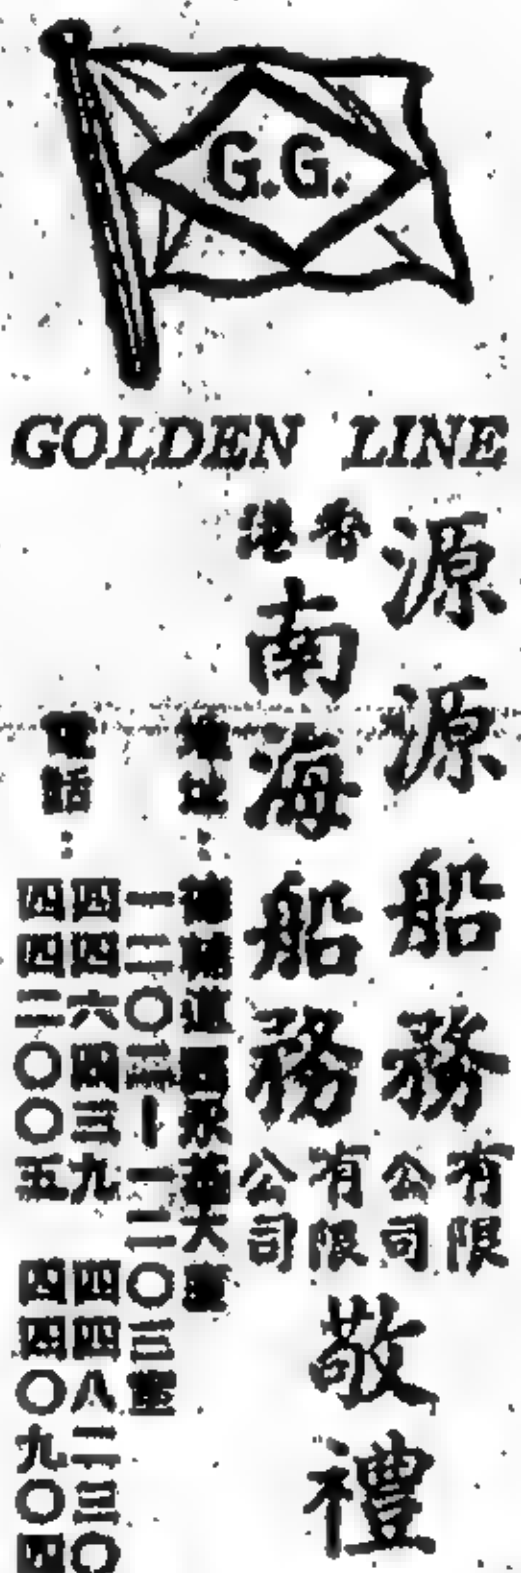 G.G.
GOLDEN LINE
源源船務有限公司
香港南海船務有限公司
敬禮
地址:德輔道西大廈
一二〇三室
電話:
四四六四三九 四四八二三〇
四四二〇〇五 四四〇九〇四